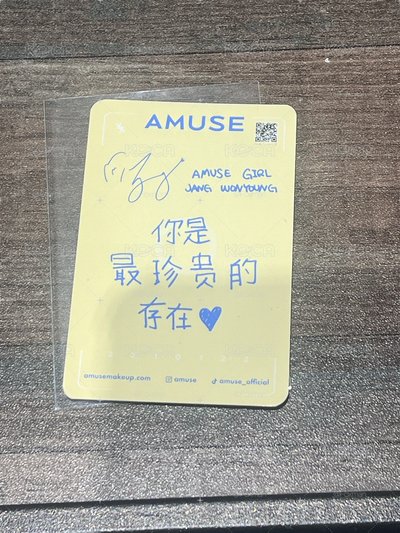 AMUSE
AMUSE GIRL
JANG WONYOUNG
你是
最珍贵的
存在♥
amusemakeup.com amuse amuse_official